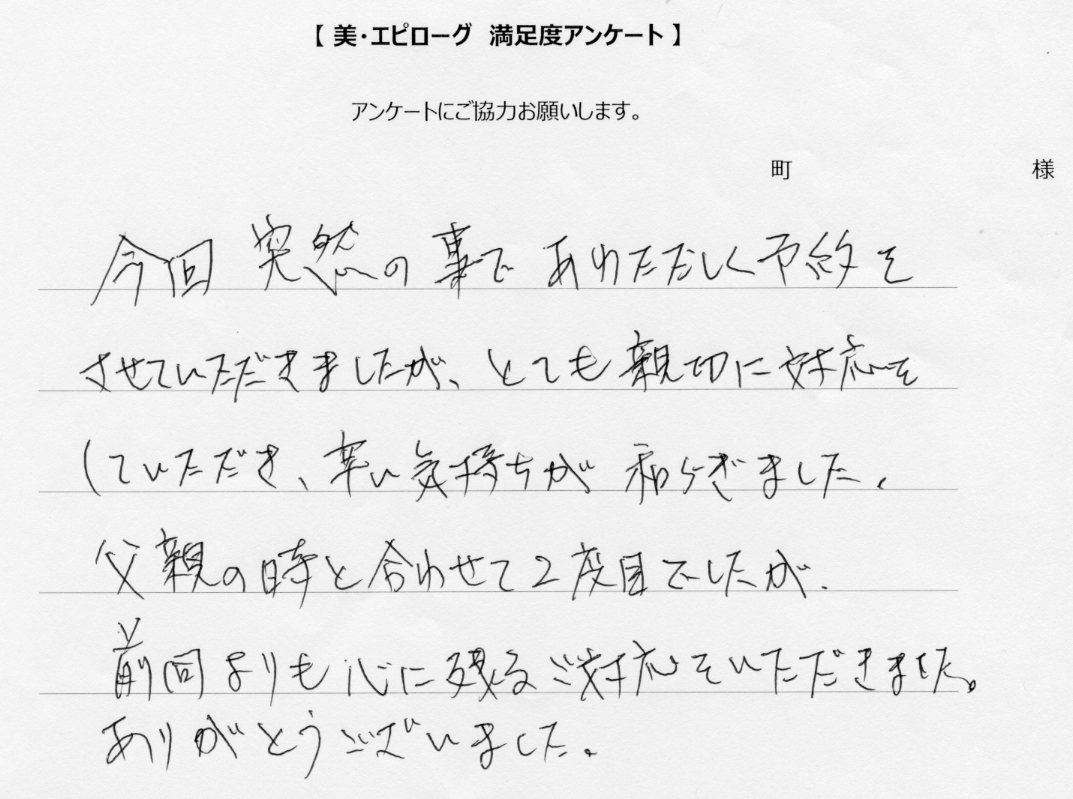 【 美・エピローグ 満足度アンケート 】
アンケートにご協力お願いします。
町 様
今回 突然の事で あわただしく予約を
させていただきましたが、とても親切に対応を
していただき、辛い気持ちが 和らぎました。
父親の時と合わせて2度目でしたが、
前回よりも心に残るご対応をいただきました。
ありがとうございました。